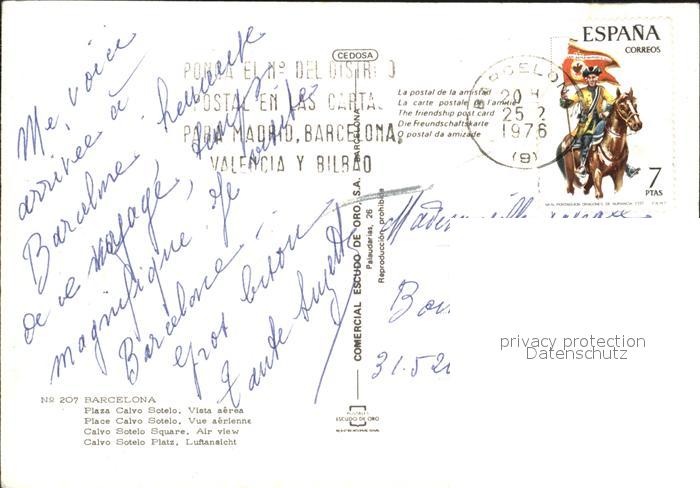 Me voici
arrivée à
Barcelone. heureuse
de ce voyage, temps
magnifique. Je visite
Barcelone...
gros bisou
Tante Suzette
CEDOSA
PONGA EL Nº DEL DISTRITO
POSTAL EN LAS CARTAS
PARA MADRID, BARCELONA,
VALENCIA Y BILBAO
La postal de la amistad
La carte postale de l'amitié
The friendship post card
Die Freundschaftskarte
O postal da amizade
BARCELONA
20 H
25 2
1976
(9)
ESPAÑA
CORREOS
7
PTAS
COMERCIAL ESCUDO DE ORO, S.A. BARCELONA
Palaudarias, 26
Reproducción prohibida
Mademoiselle
31.5
privacy protection
Datenschutz
Nº 207 BARCELONA
Plaza Calvo Sotelo. Vista aérea
Place Calvo Sotelo. Vue aérienne
Calvo Sotelo Square. Air view
Calvo Sotelo Platz, Luftansicht
POSTALES
ESCUDO DE ORO